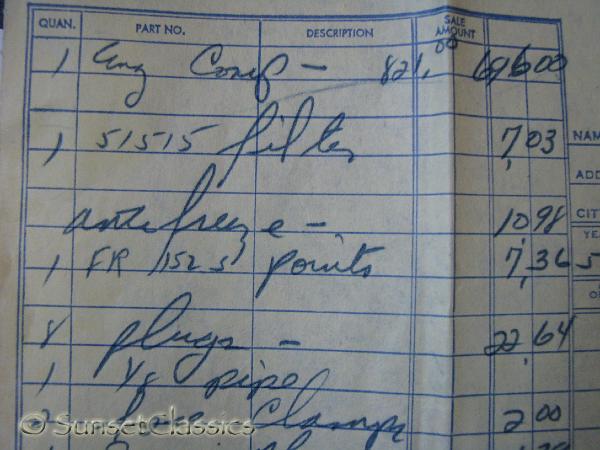 QUAN. PART NO. DESCRIPTION SALE AMOUNT
1 Eng Comp - 821.00 696.00
1 51515 filter 7.03
NAM
ADD
antifreeze - 10.98
CIT
YE
1 FR 152 S points 7.36 5
8 plugs - 22.64
1 1/8 pipe
2 hose Clamps 2.00
© SunsetClassics